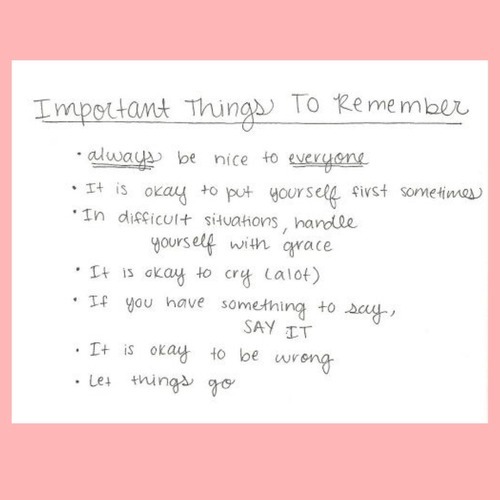 Important Things To Remember
• always be nice to everyone
• It is okay to put yourself first sometimes
• In difficult situations, handle
yourself with grace
• It is okay to cry (alot)
• If you have something to say,
SAY IT
• It is okay to be wrong
• Let things go